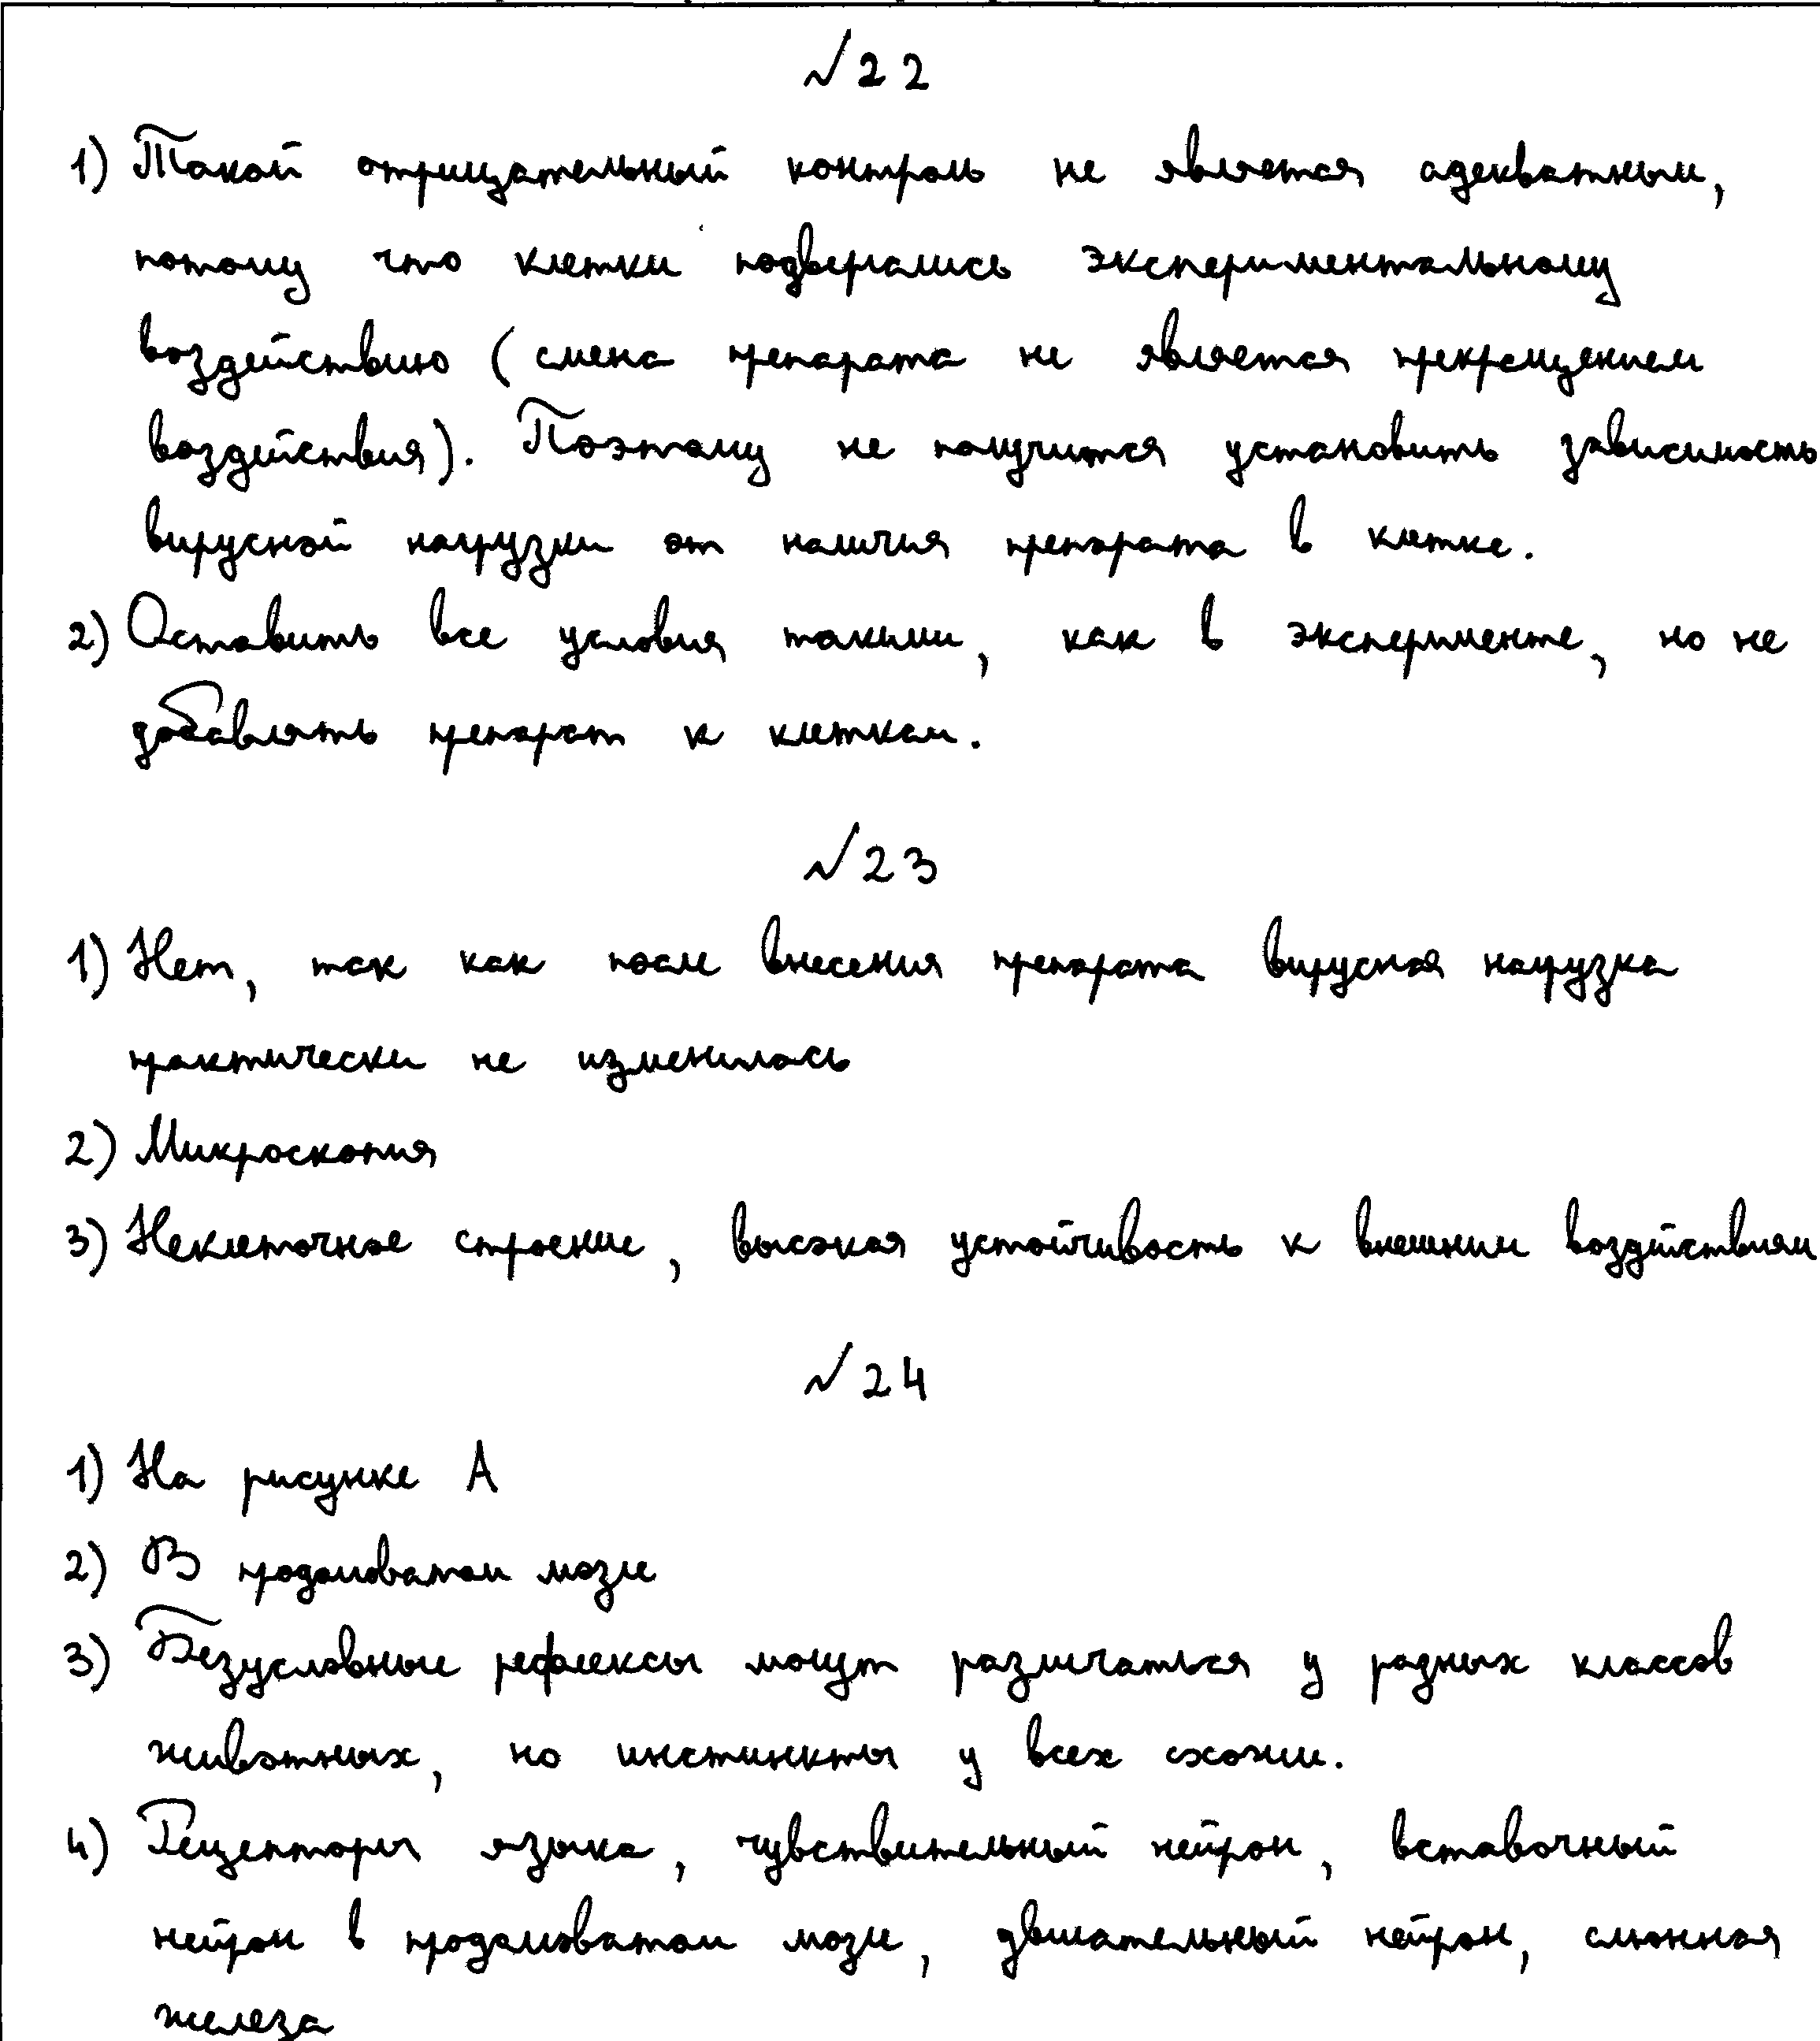 №22
1) Такой отрицательный контроль не является адекватным,
потому что клетки подвергались экспериментальному
воздействию (смена препарата не является прекращением
воздействия). Поэтому не получится установить зависимость
вирусной нагрузки от наличия препарата в клетке.
2) Оставить все условия такими, как в эксперименте, но не
добавлять препарат к клеткам.
№23
1) Нет, так как после внесения препарата вирусная нагрузка
практически не изменилась
2) Микроскопия
3) Неклеточное строение, высокая устойчивость к внешним воздействиям
№24
1) На рисунке А
2) В продолговатом мозге
3) Безусловные рефлексы могут различаться у разных классов
животных, но инстинкты у всех схожи.
4) Рецепторы языка, чувствительный нейрон, вставочный
нейрон в продолговатом мозге, двигательный нейрон, слюнная
железа